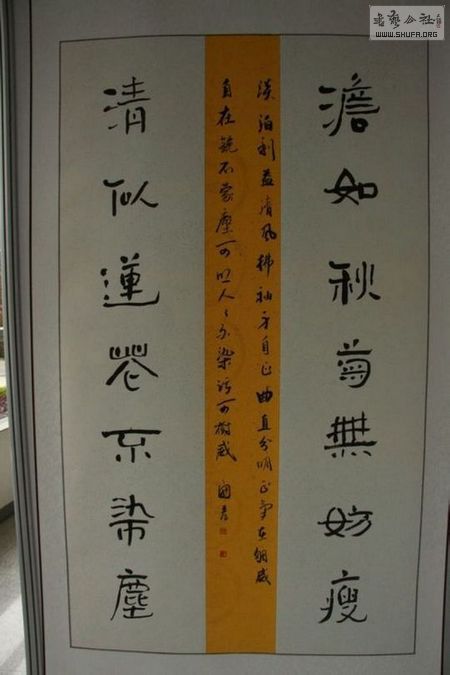 澹如秋菊無妨瘦
淡泊利益清风拂袖方自正曲直分明正气在胸威
自在镜不蒙尘可照人人不染污可树威
清似蓮花不染塵
書藝公社
WWW.SHUFA.ORG